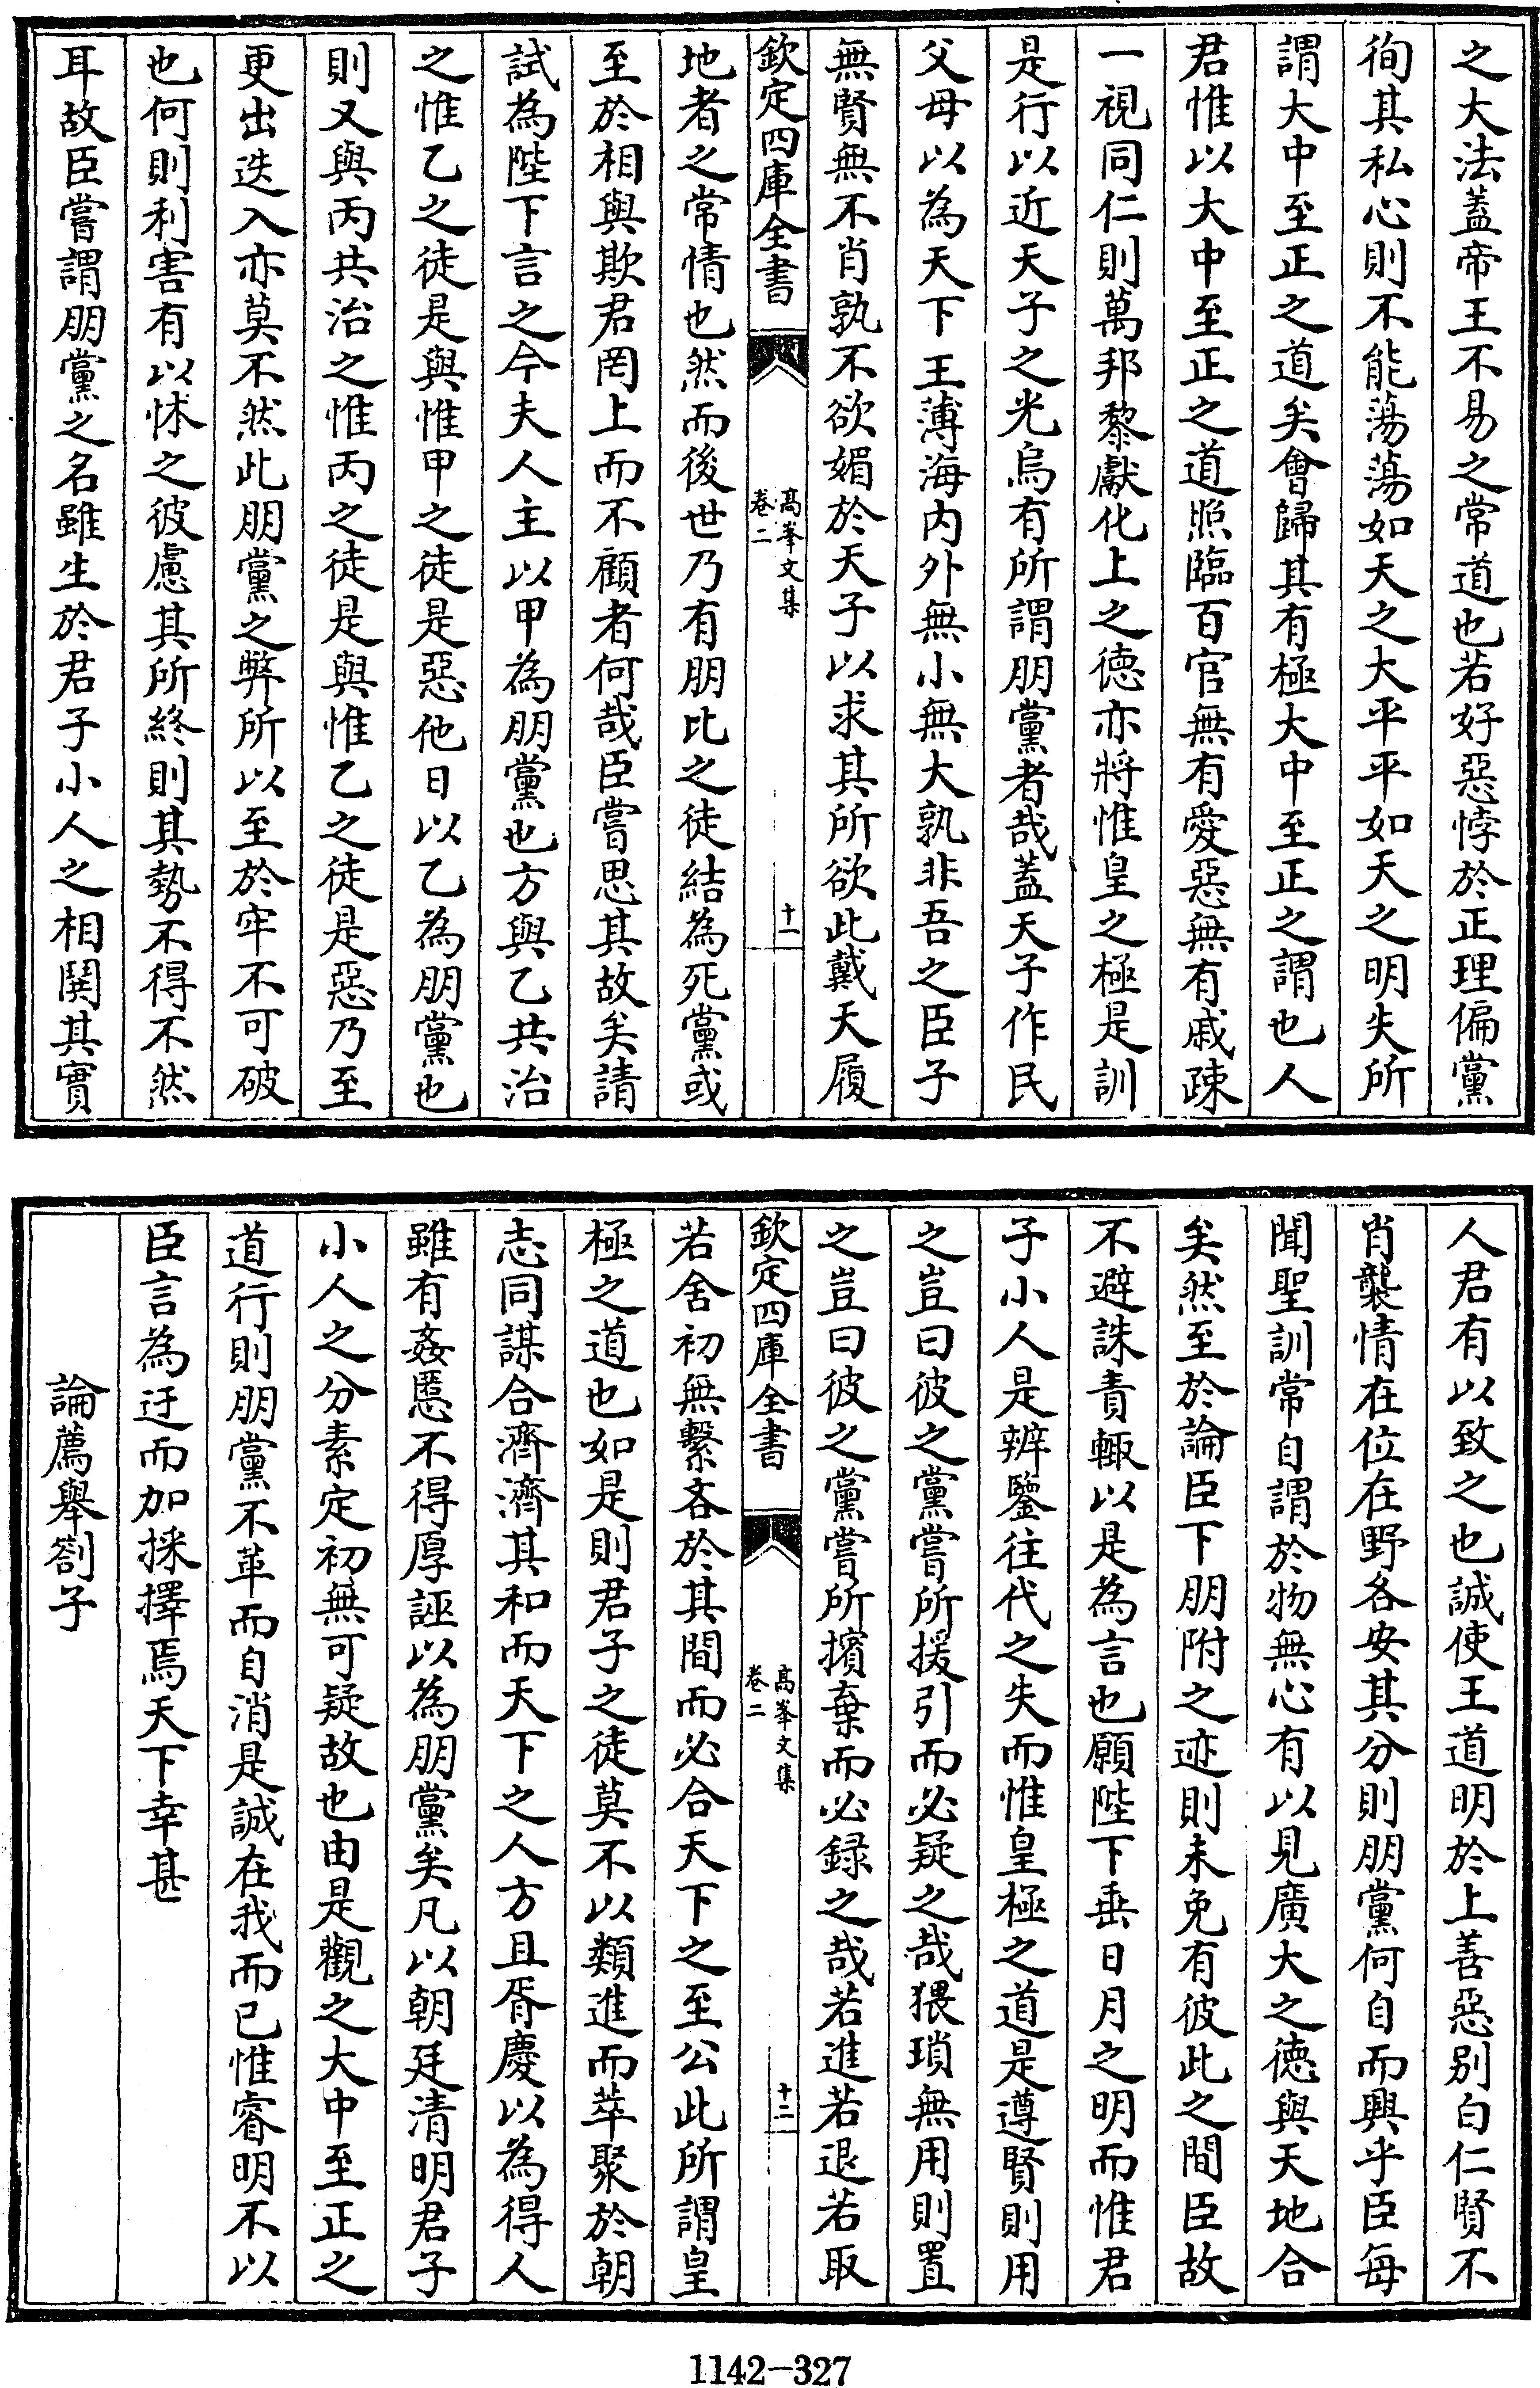 之大法蓋帝王不易之常道也若好惡悖於正理偏黨
徇其私心則不能蕩蕩如天之大平平如天之明失所
謂大中至正之道矣會歸其有極大中至正之謂也人
君惟以大中至正之道照臨百官無有愛惡無有戚疎
一視同仁則萬邦黎獻化上之德亦將惟皇之極是訓
是行以近天子之光烏有所謂朋黨者哉蓋天子作民
父母以為天下王薄海内外無小無大孰非吾之臣子
無賢無不肖孰不欲媚於天子以求其所欲此戴天履
欽定四庫全書
高峯文集
卷二
十一
地者之常情也然而後世乃有朋比之徒結為死黨或
至於相與欺君罔上而不顧者何哉臣嘗思其故矣請
試為陛下言之今夫人主以甲為朋黨也方與乙共治
之惟乙之徒是與惟甲之徒是惡他日以乙為朋黨也
則又與丙共治之惟丙之徒是與惟乙之徒是惡乃至
更出迭入亦莫不然此朋黨之弊所以至於牢不可破
也何則利害有以怵之彼慮其所終則其勢不得不然
耳故臣嘗謂朋黨之名雖生於君子小人之相鬬其實
人君有以致之也誠使王道明於上善惡别白仁賢不
肖襲情在位在野各安其分則朋黨何自而興乎臣每
聞聖訓常自謂於物無心有以見廣大之德與天地合
矣然至於論臣下朋附之迹則未免有彼此之間臣故
不避誅責輒以是為言也願陛下垂日月之明而惟君
子小人是辨鑒往代之失而惟皇極之道是遵賢則用
之豈曰彼之黨嘗所援引而必疑之哉猥瑣無用則置
之豈曰彼之黨嘗所擯棄而必録之哉若進若退若取
欽定四庫全書
高峯文集
卷二
十二
若舍初無繫吝於其間而必合天下之至公此所謂皇
極之道也如是則君子之徒莫不以類進而萃聚於朝
志同謀合濟濟其和而天下之人方且胥慶以為得人
雖有姦慝不得厚誣以為朋黨矣凡以朝廷清明君子
小人之分素定初無可疑故也由是觀之大中至正之
道行則朋黨不革而自消是誠在我而已惟睿明不以
臣言為迂而加採擇焉天下幸甚
論薦舉劄子
1142-327